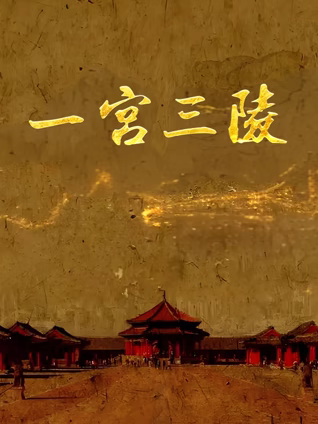 一宫三陵